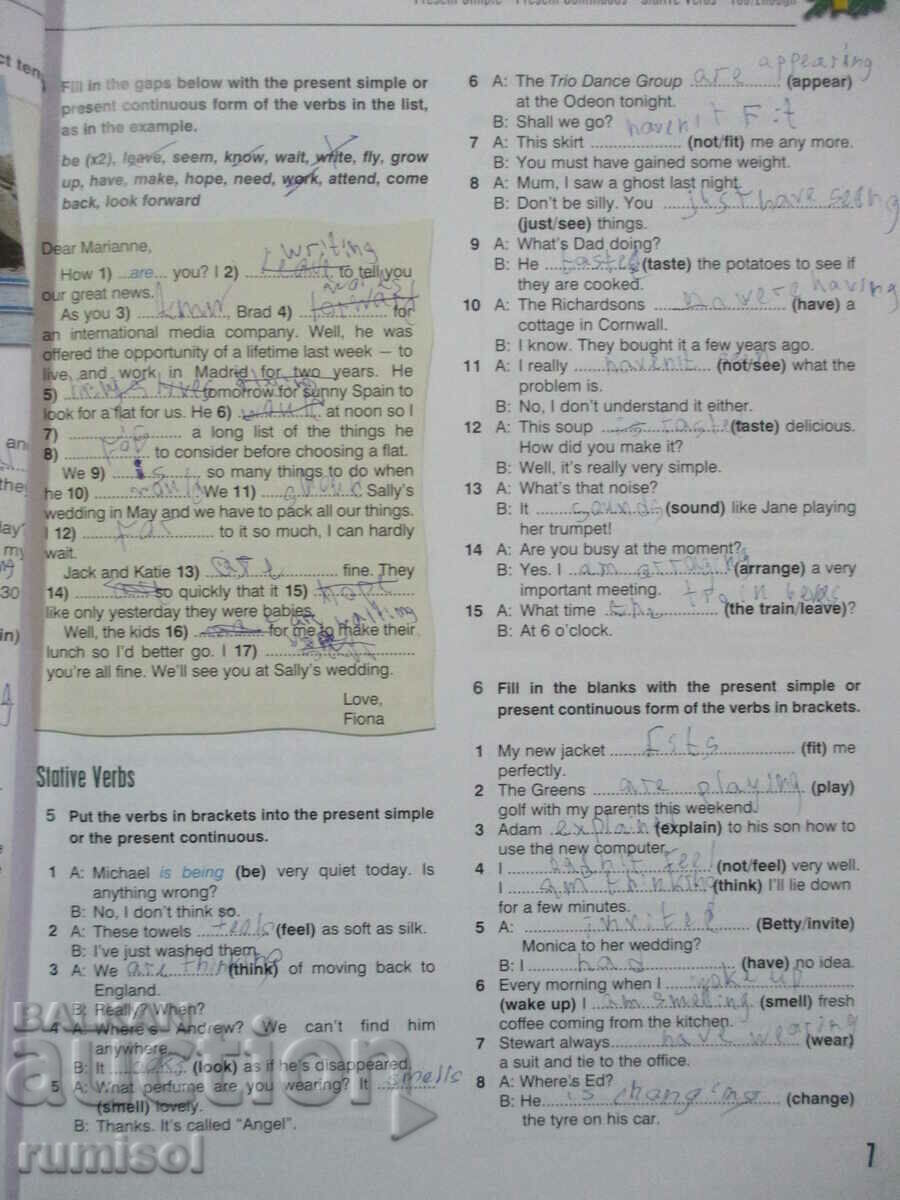 Present Simple – Present Continuous – Stative Verbs – Too/Enough
Fill in the gaps below with the present simple or
present continuous form of the verbs in the list,
as in the example.
be (x2), leave, seem, know, wait, write, fly, grow
up, have, make, hope, need, work, attend, come
back, look forward
Dear Marianne,
writing
How 1) ...are... you? I 2) ............ to tell you
our great news.
works
As you 3) ............, Brad 4) forward for
an international media company. Well, he was
offered the opportunity of a lifetime last week – to
live and work in Madrid for two years. He
5) ............ tomorrow for sunny Spain to
look for a flat for us. He 6) ............ at noon so I
7) ............ a long list of the things he
8) ............ to consider before choosing a flat.
We 9) is so many things to do when
he 10) ............ We 11) ............ Sally's
wedding in May and we have to pack all our things.
I 12) ............ to it so much, I can hardly
wait.
Jack and Katie 13) are fine. They
14) ............ so quickly that it 15) hope
like only yesterday they were babies.
waiting
Well, the kids 16) ............ for me to make their
lunch so I'd better go. I 17) ............
you're all fine. We'll see you at Sally's wedding.
Love,
Fiona
Stative Verbs
5 Put the verbs in brackets into the present simple
or the present continuous.
1 A: Michael is being (be) very quiet today. Is
anything wrong?
B: No, I don't think so.
2 A: These towels feals (feel) as soft as silk.
B: I've just washed them.
3 A: We are thinking (think) of moving back to
England.
B: Really? When?
4 A: Where's Andrew? We can't find him
anywhere.
B: It looks (look) as if he's disappeared.
5 A: What perfume are you wearing? It smells
(smell) lovely.
B: Thanks. It's called "Angel".
6 A: The Trio Dance Group are appearing (appear)
at the Odeon tonight.
B: Shall we go?
7 A: This skirt haven't Fit (not/fit) me any more.
B: You must have gained some weight.
8 A: Mum, I saw a ghost last night.
B: Don't be silly. You just have seeng
(just/see) things.
9 A: What's Dad doing?
B: He tastes (taste) the potatoes to see if
they are cooked.
10 A: The Richardsons ............ having (have) a
cottage in Cornwall.
B: I know. They bought it a few years ago.
11 A: I really haven't seen (not/see) what the
problem is.
B: No, I don't understand it either.
12 A: This soup is taste (taste) delicious.
How did you make it?
B: Well, it's really very simple.
13 A: What's that noise?
B: It sounds (sound) like Jane playing
her trumpet!
14 A: Are you busy at the moment?
B: Yes. I am arraging (arrange) a very
important meeting.
15 A: What time the train (the train/leave)?
B: At 6 o'clock.
6 Fill in the blanks with the present simple or
present continuous form of the verbs in brackets.
1 My new jacket fits (fit) me
perfectly.
2 The Greens are playing (play)
golf with my parents this weekend.
3 Adam explain (explain) to his son how to
use the new computer.
4 I ............ feel (not/feel) very well.
I am thinking (think) I'll lie down
for a few minutes.
5 A: invited (Betty/invite)
Monica to her wedding?
B: I has (have) no idea.
6 Every morning when I wake up
(wake up) I am smeling (smell) fresh
coffee coming from the kitchen.
7 Stewart always have wearing (wear)
a suit and tie to the office.
8 A: Where's Ed?
B: He is changing (change)
the tyre on his car.
7
BALKAN
auction
rumisol